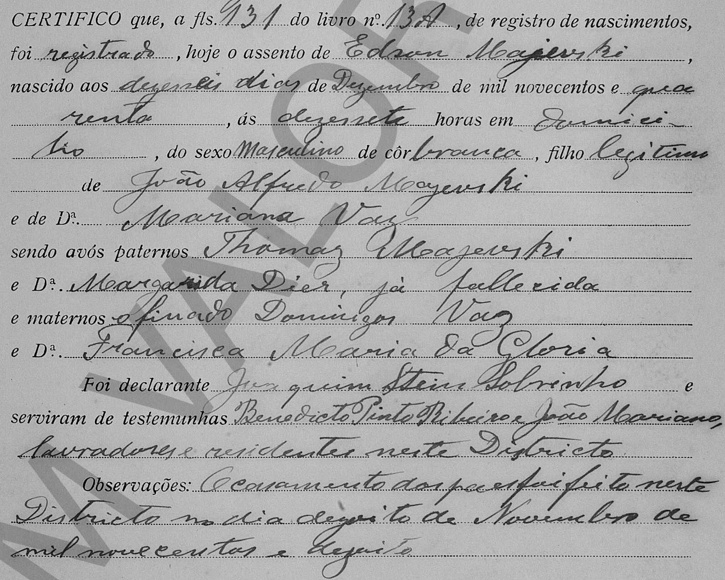 CERTIFICO que, a fls. 131 do livro nº. 13A, de registro de nascimentos,
foi registrado, hoje o assento de Edson Majevski,
nascido aos dezesseis dias de Dezembro de mil novecentos e qua
renta, ás dezessete horas em domici-
lio, do sexo Masculino de côr branca, filho legitimo
de João Alfredo Majevski
e de Dª. Mariana Vaz
sendo avós paternos Thomaz Majevski
e Dª. Margarida Dier, já fallecida
e maternos o finado Domingos Vaz
e Dª. Francisca Maria da Gloria
Foi declarante Joaquim Stein Sobrinho e
serviram de testemunhas Benedicto Pinto Ribeiro e João Mariano,
lavradores e residentes neste Districto
Observações: O casamento dos paes foi feito neste
Districto no dia dezoito de Novembro de
mil novecentos e dezoito
M VALOR